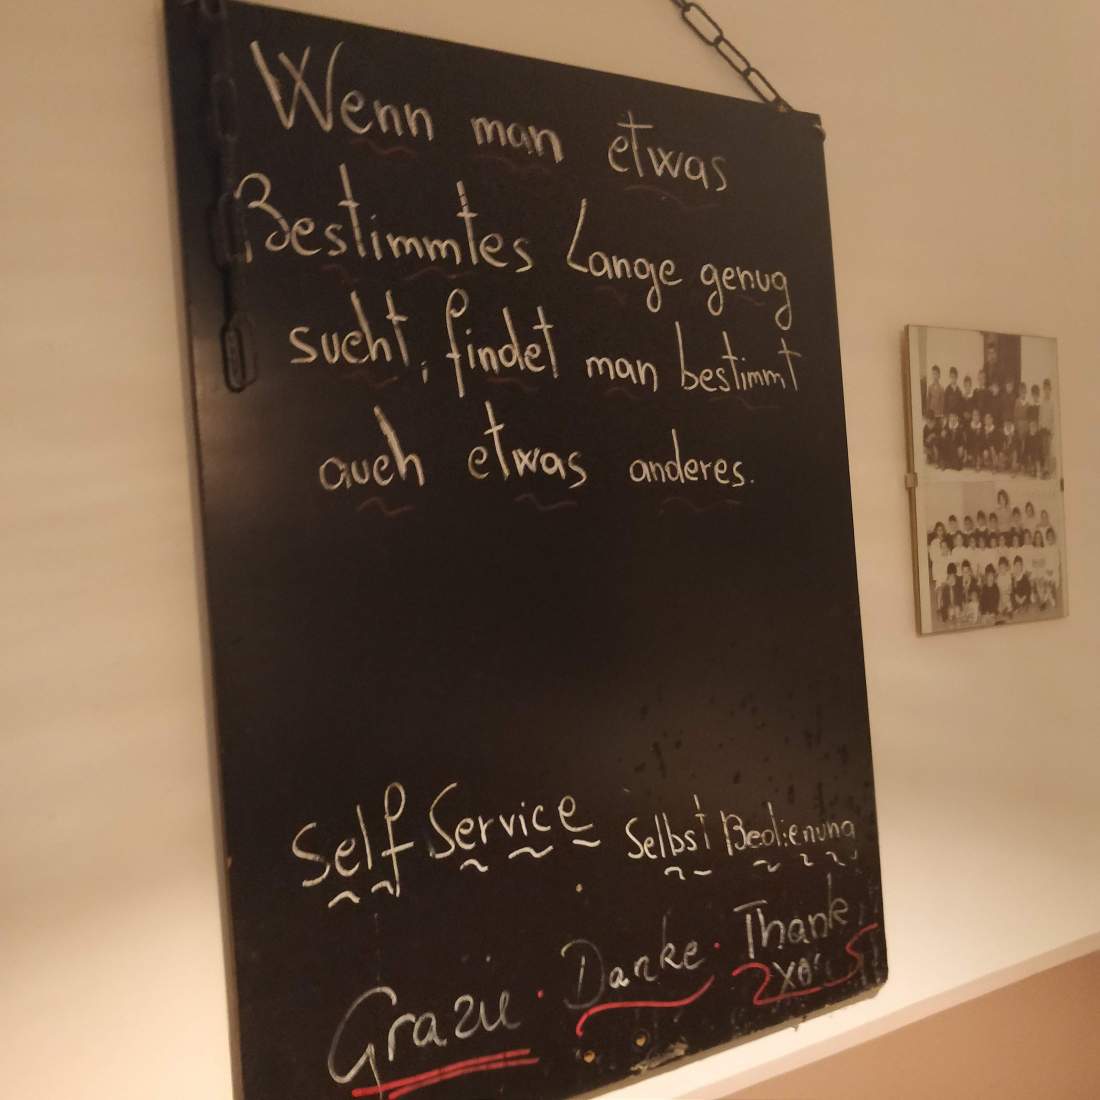 Wenn man etwas
Bestimmtes Lange genug
sucht, findet man bestimmt
auch etwas anderes.
Self Service Selbst Bedienung
Grazie · Danke · Thank